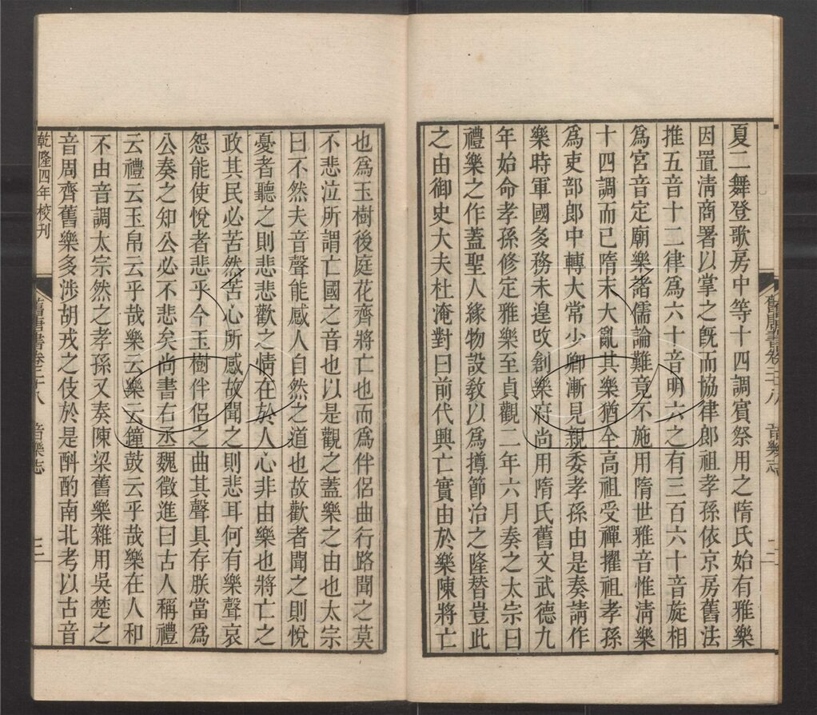 夏二舞登歌房中等十四調賓祭用之隋氏始有雅樂
因置清商署以掌之旣而協律郎祖孝孫依京房舊法
推五音十二律爲六十音明六之有三百六十音旋相
爲宮音定廟樂諸儒論難竟不施用隋世雅音惟淸樂
十四調而已隋末大亂其樂猶全高祖受禪擢祖孝孫
爲吏部郎中轉太常少卿漸見親委孝孫由是奏請作
樂時軍國多務未遑改創樂府尚用隋氏舊文武德九
年始命孝孫修定雅樂至貞觀二年六月奏之太宗曰
禮樂之作蓋聖人緣物設教以爲撙節治之隆替豈此
之由御史大夫杜淹對曰前代興亡實由於樂陳將亡
舊唐書卷二十八 音樂志 二
也爲玉樹後庭花齊將亡也而爲伴侶曲行路聞之莫
不悲泣所謂亡國之音也以是觀之蓋樂之由也太宗
曰不然夫音聲能感人自然之道也故歡者聞之則悅
憂者聽之則悲悲歡之情在於人心非由樂也將亡之
政其民必苦然苦心所感故聞之則悲耳何有樂聲哀
怨能使悅者悲乎今玉樹伴侶之曲其聲具存朕當爲
公奏之知公必不悲矣尚書右丞魏徵進曰古人稱禮
云禮云玉帛云乎哉樂云樂云鐘鼓云乎哉樂在人和
不由音調太宗然之孝孫又奏陳梁舊樂雜用吳楚之
音周齊舊樂多涉胡戎之伎於是斟酌南北考以古音
乾隆四年校刊
舊唐書卷二十八 音樂志 三